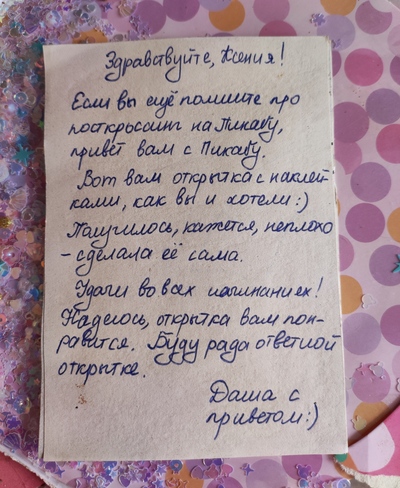 Здравствуйте, Ксения!
Если вы ещё помните про
посткроссинг на Пикабу,
привет вам с Пикабу.
Вот вам открытка с наклей-
ками, как вы и хотели:)
Получилось, кажется, неплохо
- сделала её сама.
Удачи во всех начинаниях!
Надеюсь, открытка вам пон-
равится. Буду рада ответной
открытке.
Даша с
приветом:)